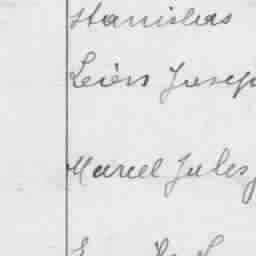 Stanislas
Léon Joseph
Marcel Jules